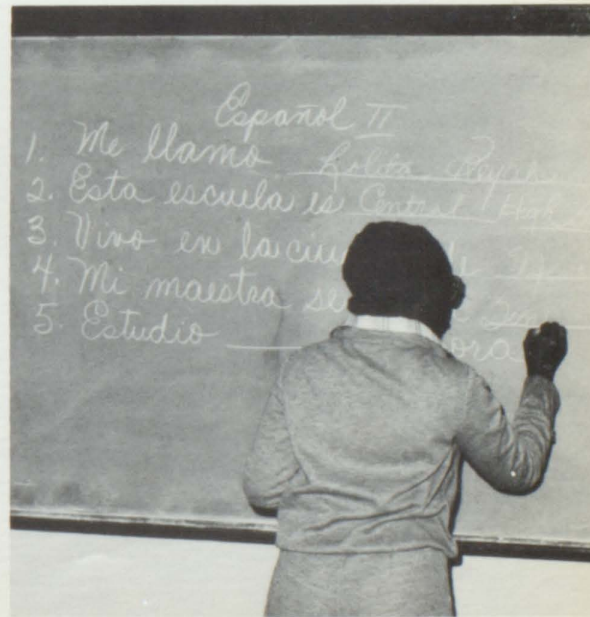 Español II
1. Me llamo Lolita Reyes
2. Esta escuela es Central High
3. Vivo en la ciu de
4. Mi maestra se
5. Estudio ora